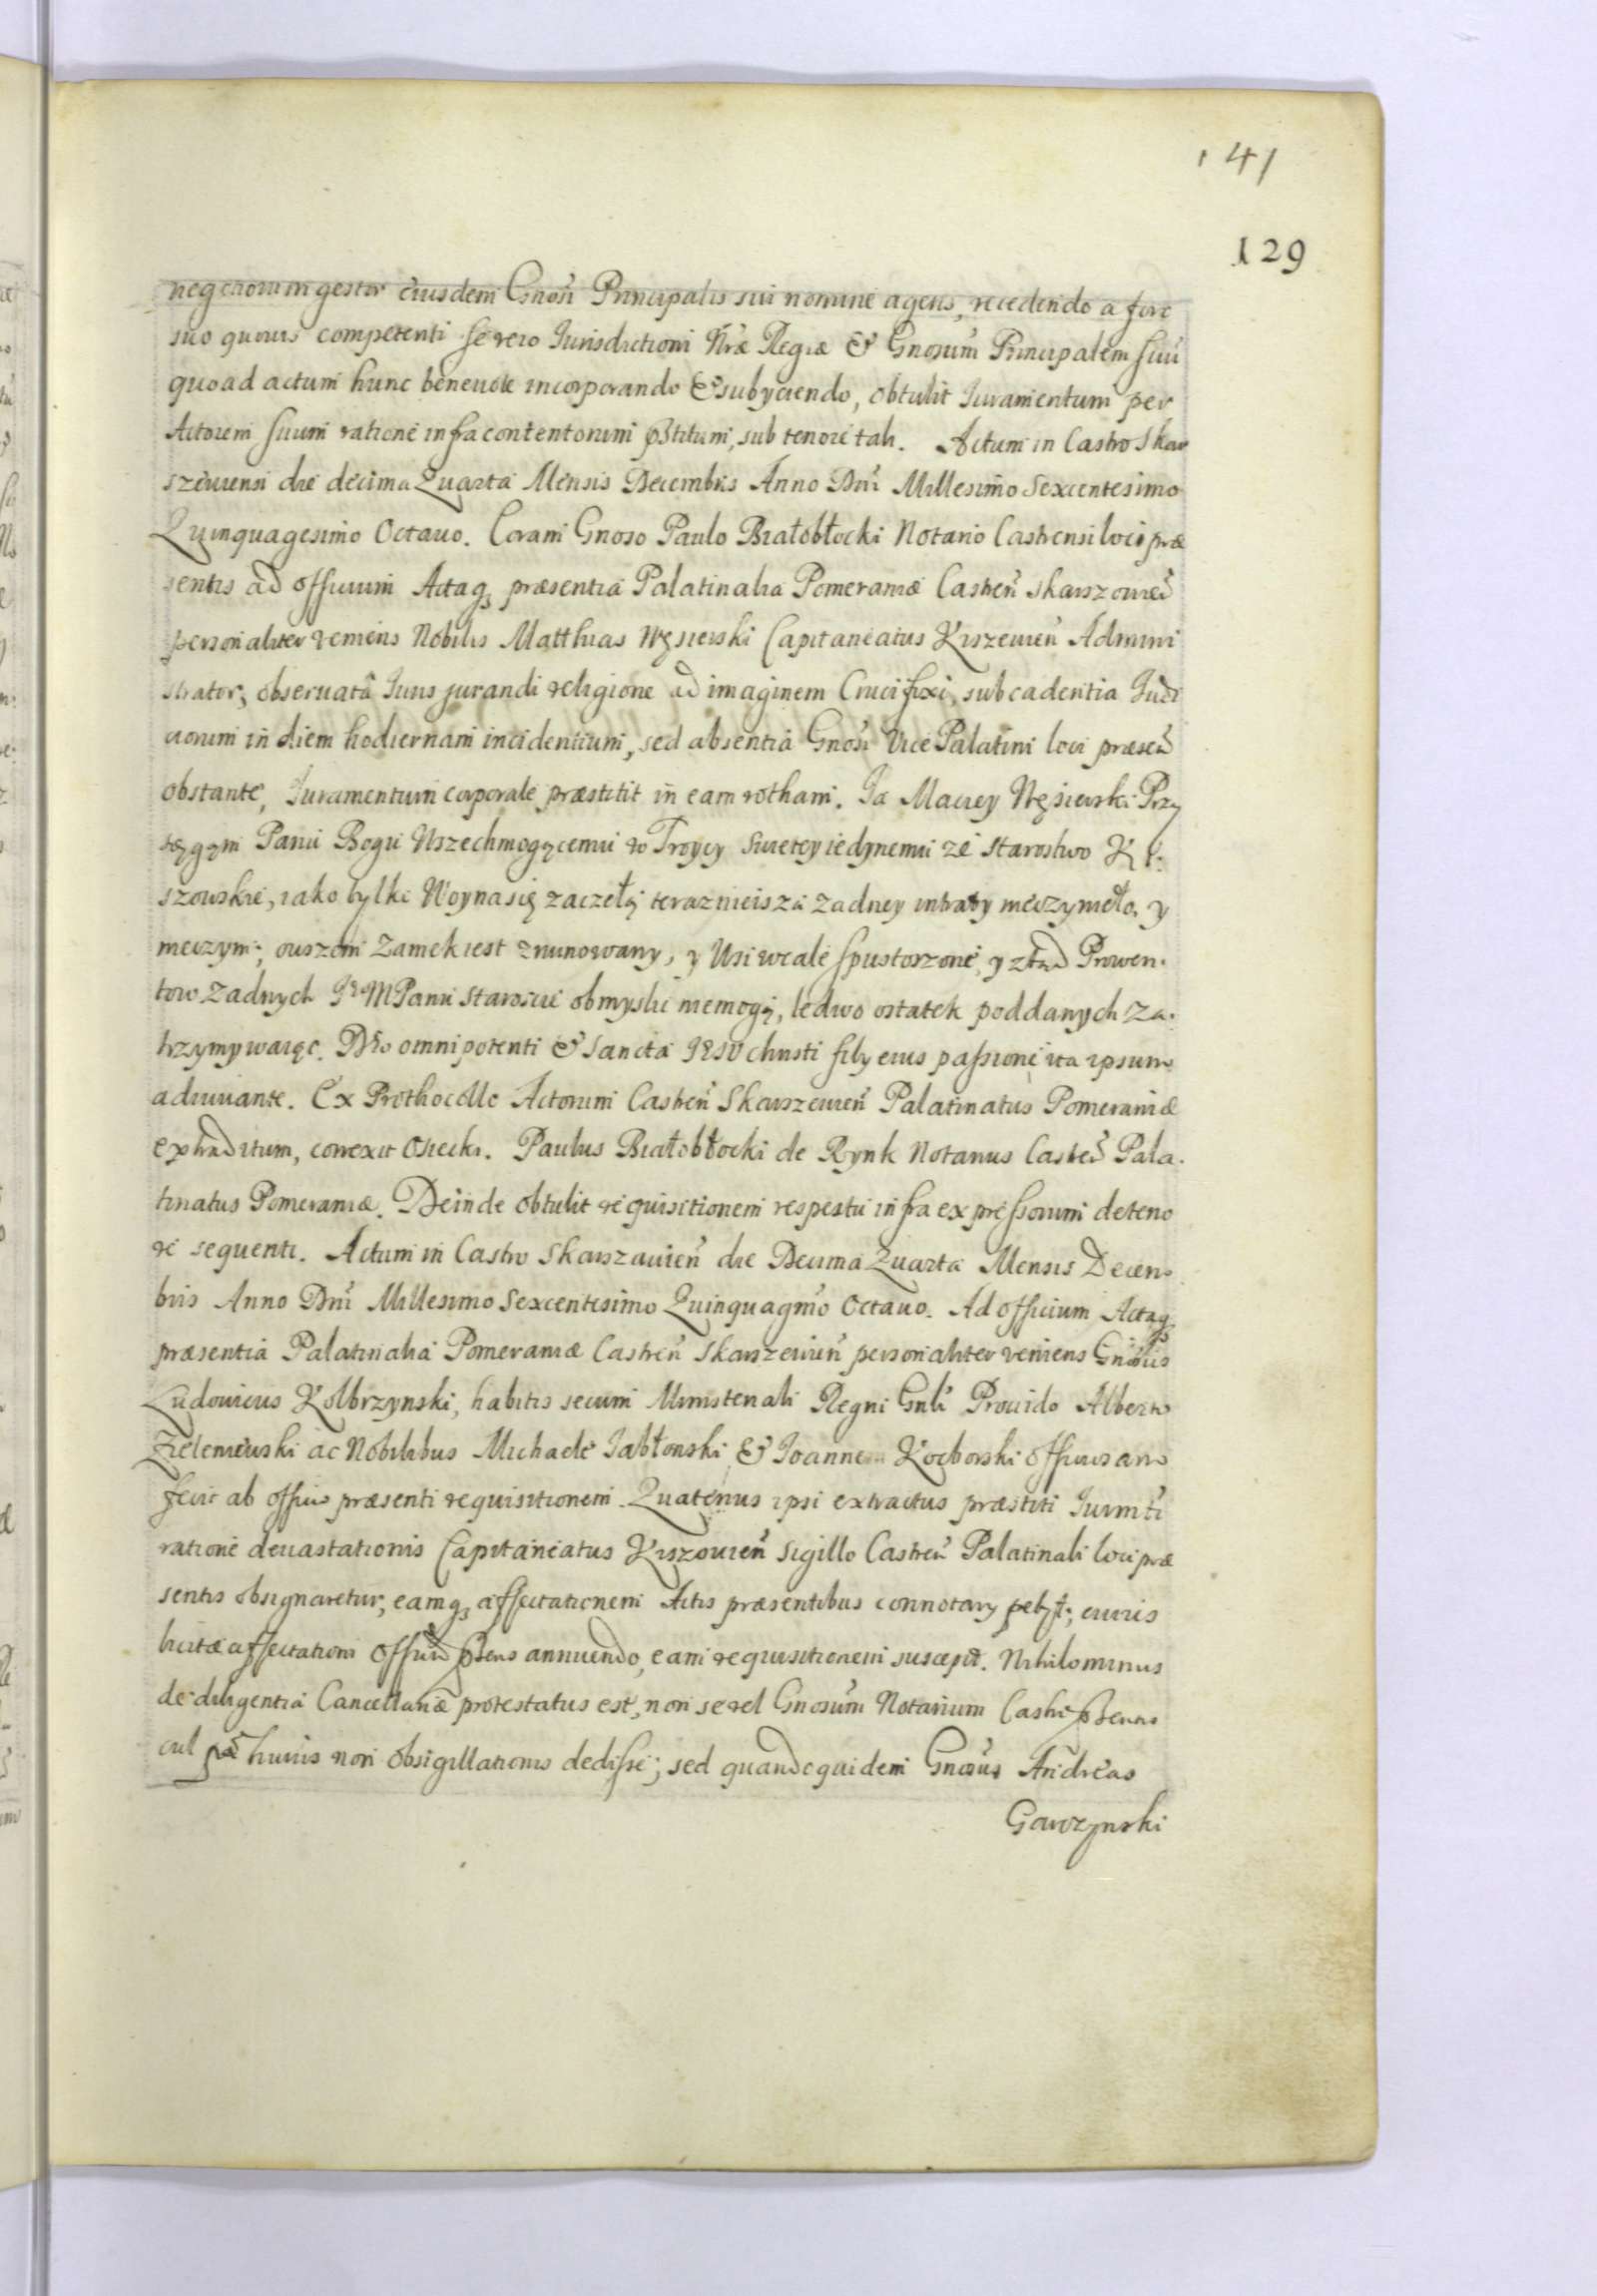 141
129
negotiorum gestor eiusdem Gnosi Principalis sui nomine agens, recedendo a foro
suo quouis competenti se vero Jurisdictioni Nræ Regiæ & Gnosum Principalem suu
quoad actum hunc beneuole incorporando & subyciendo, obtulit Juramentum per
Actorem suum ratione infra contentorum pstitum, sub tenore tali. Actum in Castro Skar
szeuiensi die decima Quarta Mensis Decembris Anno Dni Millesimo Sexcentesimo
Quinquagesimo Octauo. Coram Gnoso Paulo Białobłocki Notario Castrensi loci præ
sentis ad officium Actaq, præsentia Palatinalia Pomeraniæ Castren Skarszouien
personaliter veniens Nobilis Matthias Węsierski Capitaneatus Kiszeuien Admini
strator, obseruata Juris jurandi religione ad imaginem Crucifixi, sub cadentia Judi
ciorum in diem hodiernam incidentium, sed absentia Gnosi Vice Palatini loci præsen
obstante, Juramentum corporale præstitit in eam rotham. Ja Maciey Węsierski Przy
sięgąm Panu Bogu Wszechmogącemu w Troycy Swietey iedynemu ze Starostwo Ki
szowskie, iako tylko Woyna się zaczeła terazniejsza zadney intraty nieczyniło, y
nieczyni; owszem Zamek iest zruinowany, y Wsi wcale spustoszone, y ztąd Prowen
tow zadnych Je MPanu Staroscie obmyslic niemogą, ledwo ostatek poddanych za
trzymywaiąc. Deo omnipotenti & Sancta Jesu Christi fily eius passione ita ipsum
adiuuante. Ex Prothocollo Actorum Castren Skarszeuien Palatinatus Pomeraniæ
extraditum, correxit Osiecki. Paulus Białobłocki de Rynk Notarius Castren Pala
tinatus Pomeraniæ. Deinde obtulit requisitionem respectu infra expressorum de teno
re sequenti. Actum in Castro Skarszauien die Decima Quarta Mensis Decem
bris Anno Dni Millesimo Sexcentesimo Quinquagmo Octauo. Ad officium Actaq
præsentia Palatinalia Pomeraniæ Castren Skarszeuien personaliter veniens Gnosus
Ludouicus Kolbrzynski, habitis secum Ministeriali Regni Gnli Prouido Alberto
Zieleniewski ac Nobilibus Michaele Jabłonski & Joanne Kocborski officiosam
fecit ab officio præsenti requisitionem. Quatenus ipsi extractus præstiti Jurmti
ratione deuastationis Capitaneatus Kiszouien Sigillo Castren Palatinali loci præ
sentis obsignaretur, eamq, affectationem Actis præsentibus connotary petyt; cuius
licitæ affectationi Officiu psens annuendo, eam requisitionem suscepit. Nihilominus
de diligentia Cancellariæ protestatus est, non se vel Gnosum Notarium Castri psentis
culpæ huius non obsigillationis dedisse; sed quandoquidem Gnosus Andreas
Garczynski